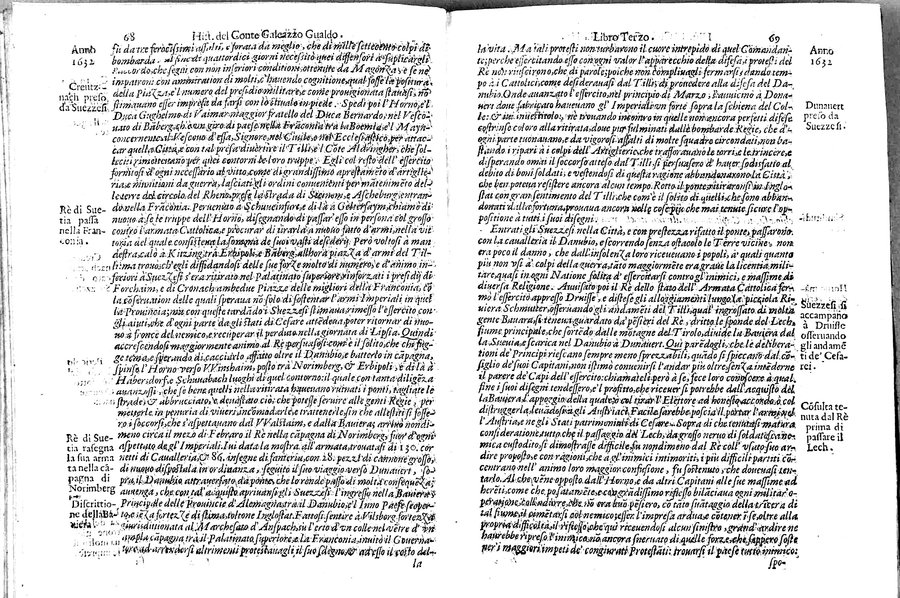 68 Hist. del Conte Galeazzo Gualdo.
Anno
1632
Creitz-
nagh preso
da Suezzesi.
Rè di Sue-
tia passa
nella Fran-
conia.
Rè di Sue-
tia rasegna
la sua ar-
mata nella cã-
pagna di
Norimberg
Discrittio-
ne della Ba-
viera
fù da tre ferocissimi assalti, e forata da meglio, che di mille settecento colpi di
bombarda. Al fine di quattordici giorni necessitò quei diffensori à supplicargli
l'accordo che seguì con non inferiori conditioni, ottenute da Magonza, e se ne
impatronì con ammiration di molti, e havendo cognitione, qual fosse la postura
della Piazza, e'l numero del presidio militare, e come prouigionata stanasi, nõ
stimauano esser impresa da farsi con lo stiualo in piede. Spedì poi l'Horno, e'l
Duca Guglielmo di Vaimar maggior fratello del Duca Bernardo, nel Vesco-
uato di Bãberg, ch'è un giro di paese nella Frãconia tra la Boemia, e'l Mayn-
concernente al Vescouo d'essa, Signore, nel Ciuile, e nel Ecclesiastico, per attac-
car quella Città, e con tal presa diuertire il Tillì, e'l Cõte Aldringher, che sol-
leciti rimetteuano per quei contorni le loro truppe. Egli col resto dell'essercito
fornitosi d'ogni necessario al vitto, come di grandissimo aprestamẽto d'artiglie-
ria e munitioni da guerra, lasciati gli ordini conuenienti per matenimẽto del-
le terre del circolo del Rheno, prese la strada di Steinom, e Ascheburg, entran-
do nella Frãconia. Peruenuto à Scheuinforte, e di là à Geltersaym, chiamò di
nuouo à sè le truppe dell'Horno, disegnando di passar esso in persona col grosso
contro l'armata Cattolica, e procurar di tirarla à nuouo fatto d'armi, nella vit-
toria del quale consisteua la somma de suoi vasti desiderij. Però voltosi à man
destra, e calò à Kitzing, trà Erbipoli, e Bãberg, allhora piazza d'armi del Til-
lì, ma trouò, ch'egli diffidando delle sue forze molto di numero, e d'animo in-
feriori à Suezzesi s'era ritirato nel Palatinato superiore, rinforzati i presidij di
Forchaim, e di Cronach ambedue Piazze delle migliori della Franconia, cõ
la cõseruation delle quali speraua nõ solo di sostentar l'armi Imperiali in quel
la Prouincia, ma con queste tardãdo i Suezzesi stimaua, rimesso l'essercito con
gli aiuti, che d'ogni parte da gli stati di Cesare attẽdeua, poter ritornar di nuo-
uo à fronte del nemico, e recuperar il perduto nella giornata di Lipsia. Quindi
accrescendosi maggiormente animo al Rè persuasosi, come è il solito, che chi fug-
ge tema, e sperando di cacciarlo affatto oltre il Danubio, e batterlo in cãpagna,
spinse l'Horno verso VVinshaim, posto trà Norimberg, e Erbipoli, e di là à
Habersdorf, e Schuuabach luoghi di quel contorno, il quale con tanta diligẽza
auanzossi, che se bene quelli nella ritirata haueuano ruinati i ponti, tagliate le
strade, abbrucciato, e deuastato ciò; che potesse seruire alle genti Regie, per
metterle in penuria di viueri, incõmodarle, e trattenerle, sin che allestiti si fosse-
ro i soccorsi, che s'aspettauano dal VValstaim, e dalla Bauiera; arriuò nondi-
meno circa il mezo di Febraro il Rè nella cãpagna di Norimberg, fuor d'ogni
aspettato de gl'Imperiali. Qui mostrò la sua armata, trouata di 130. cor-
netti di Caualleria, e 86. insegne di fanteria, con 28. pezzi di cannone grosso,
di nuouo dispostala in ordinanza, seguitò il suo viaggio verso Dunauert, so-
pra il Danubio attrauersato da ponte, che lo rende passo di molta conseguẽza
auuenga, che con tal acquisto apriuansi gli Suezzesi l'ingresso nella Bauiera
Principale delle Prouincie d'Alemagna, trà il Danubio, e l'Inno Paese opor-
tuno, e la fortezza di stima, votone Inglostat. Fattosi sentire à Vilsborg fortezza
giurisditionata al Marchesato d'Anspach, sù l'erto d'un colle nel vẽtre d'un'
ampia campagna trà il Palatinato Superiore, e la Franconia, inuitò il Gouerna-
tore ad arrendersi altrimenti protestauagli il suo sdegno, ad esso il costo del-
la
Libro Terzo. 69
Anno
1632
Dunauert
preso da
Suezzesi.
Suezzesi si
accampano
à Druisse
osseruando
gli andamẽ
ti de' Cesa-
rei.
Cõsulta te-
nuta dal Rè
prima di
passare il
Lech.
la vita. Ma tali protesti non turbarono il cuore intrepido di quel Comandan-
te; perche essercitando esso con ogni valor l'apparecchio della difesa, i protesti del
Rè non riuscirono, che di parole; poiche non compliuagli fermarsi, e dando tem-
po à i Cattolici, come desiderauasi dal Tillì, di prouedere alla difesa del Da-
nubio. Onde auanzato l'essercito, nel principio di Marzo, à Dunauert
doue fabricato haueuano gl'Imperiali vn forte sopra la schiena del Col-
le; e iui inuestitolo, nè trouando incontro in quelle non ancora perfetti difese
costrinse coloro alla ritirata, doue pur fulminati dalle bombarde Regie, che d'o-
gni parte tuonauano, e da vigorosi assalti di molte squadre circondati, non ba-
stando i ripari à i colpi dell'Artiglierie, che trasforauano le torri, e le trincere, e
disperando omai il soccorso atteso dal Tillì, si persuasero d'hauer sodisfatto al
debito di buoni soldati, e vestendosi di questa ragione abbandonaron la Città,
che ben poteua resistere ancora alcun tempo. Rotto il ponte ritiraronsi in Inglo-
stat con gran sentimento del Tillì, che com'è il solito di quelli, che sono abban-
donati d'alta fortuna, prouaua ancora nelle cose più che mai tenute sicure l'op-
positione à tutti i suoi disegni.
Entrati gli Suezzesi nella Città, e con prestezza rifatto il ponte, passarono
con la caualleria il Danubio, e scorrendo senza ostacolo le Terre vicine, non
era poco il danno, che dall'insolenza loro riceueuano i popoli, à quali quanto
più non vsi à colpi della guerra, tãto maggiormẽte era graue la licentia mili-
tare, quasi in ogni Natione solita d'essercitarsi contro gl'inimici, e massime di
diuersa Religione. Auuisato poi il Rè dello stato dell'Armata Cattolica fer-
mò l'essercito appresso Druisse, e distese gli alloggiamenti lungo la picciola Ri-
uiera Schmutter, osseruando gli andamẽti del Tillì, qual ingrossato di molta
gente Bauara, si teneua guardato da' pẽsieri del Rè, dritto le sponde del Lech,
fiume principale, che sortẽdo dal mõte del Tirolo, diuide la Bauiera dalla
Sueuia, e scarica nel Danubio à Dunauert. Qui parẽdogli, che le delibera-
tioni de' Principi riescano sempre meno sprezzabili, quãdo si spiccano dal cõ-
siglio de' suoi Capitani, non istimò conuenirsi l'andar più oltre, senza intendere
il parere de' Capi dell'essercito; chiamateli però à sè, fece loro conoscere à qual
fine i suoi disegni tendessero, e'l profitto, che riceuer si potrebbe dall'acquisto del
la Bauiera, l'appoggio della quale ò col tirar l'Elettore ad honesto accordo, ò col
distruggerla, leuãdosi à gli Austriaci, Facile sarebbe poscia il portar l'armi, nel
l'Austria, e ne gli Stati patrimoniali di Cesare. Sopra di che tenutasi matura
consideratione, tutto che il passaggio del Lech, da grosso neruo di soldatesca ini-
mica custodito, si dimostrasse difficile, su nondimeno dal Rè coll'usato suo ar-
dire proposto, e con ragioni, che à gl'inimici intimoriti, i più difficili partiti con-
centrano nell'animo loro maggior confusione, fu sostenuto, che doueuasi ten-
tarlo. Al che vẽne opposto dall'Horno, e da altri Capitani alle sue massime ad
herẽti, come che posatamẽte, e con grãdissimo riflesso bilãciaua ogni militar o-
peratione, col ricordare, che nõ era buõ pẽsiero, cõ tanto suãtaggio della riuera di
tal fiume, il cimẽtarsi col nemico; esser l'impresa ardua, e cõtener in se, oltre alla
propria difficoltà, il riflesso, che qui riceuendosi alcun sinistro, grand'ardire ne
haurebbe ripreso l'inimico, nõ ancora sneruato di quelle forze, che sappero soste
ner i maggiori impeti de' congiurati Protestãti: trouarsi il paese tutto inimico;
spo-